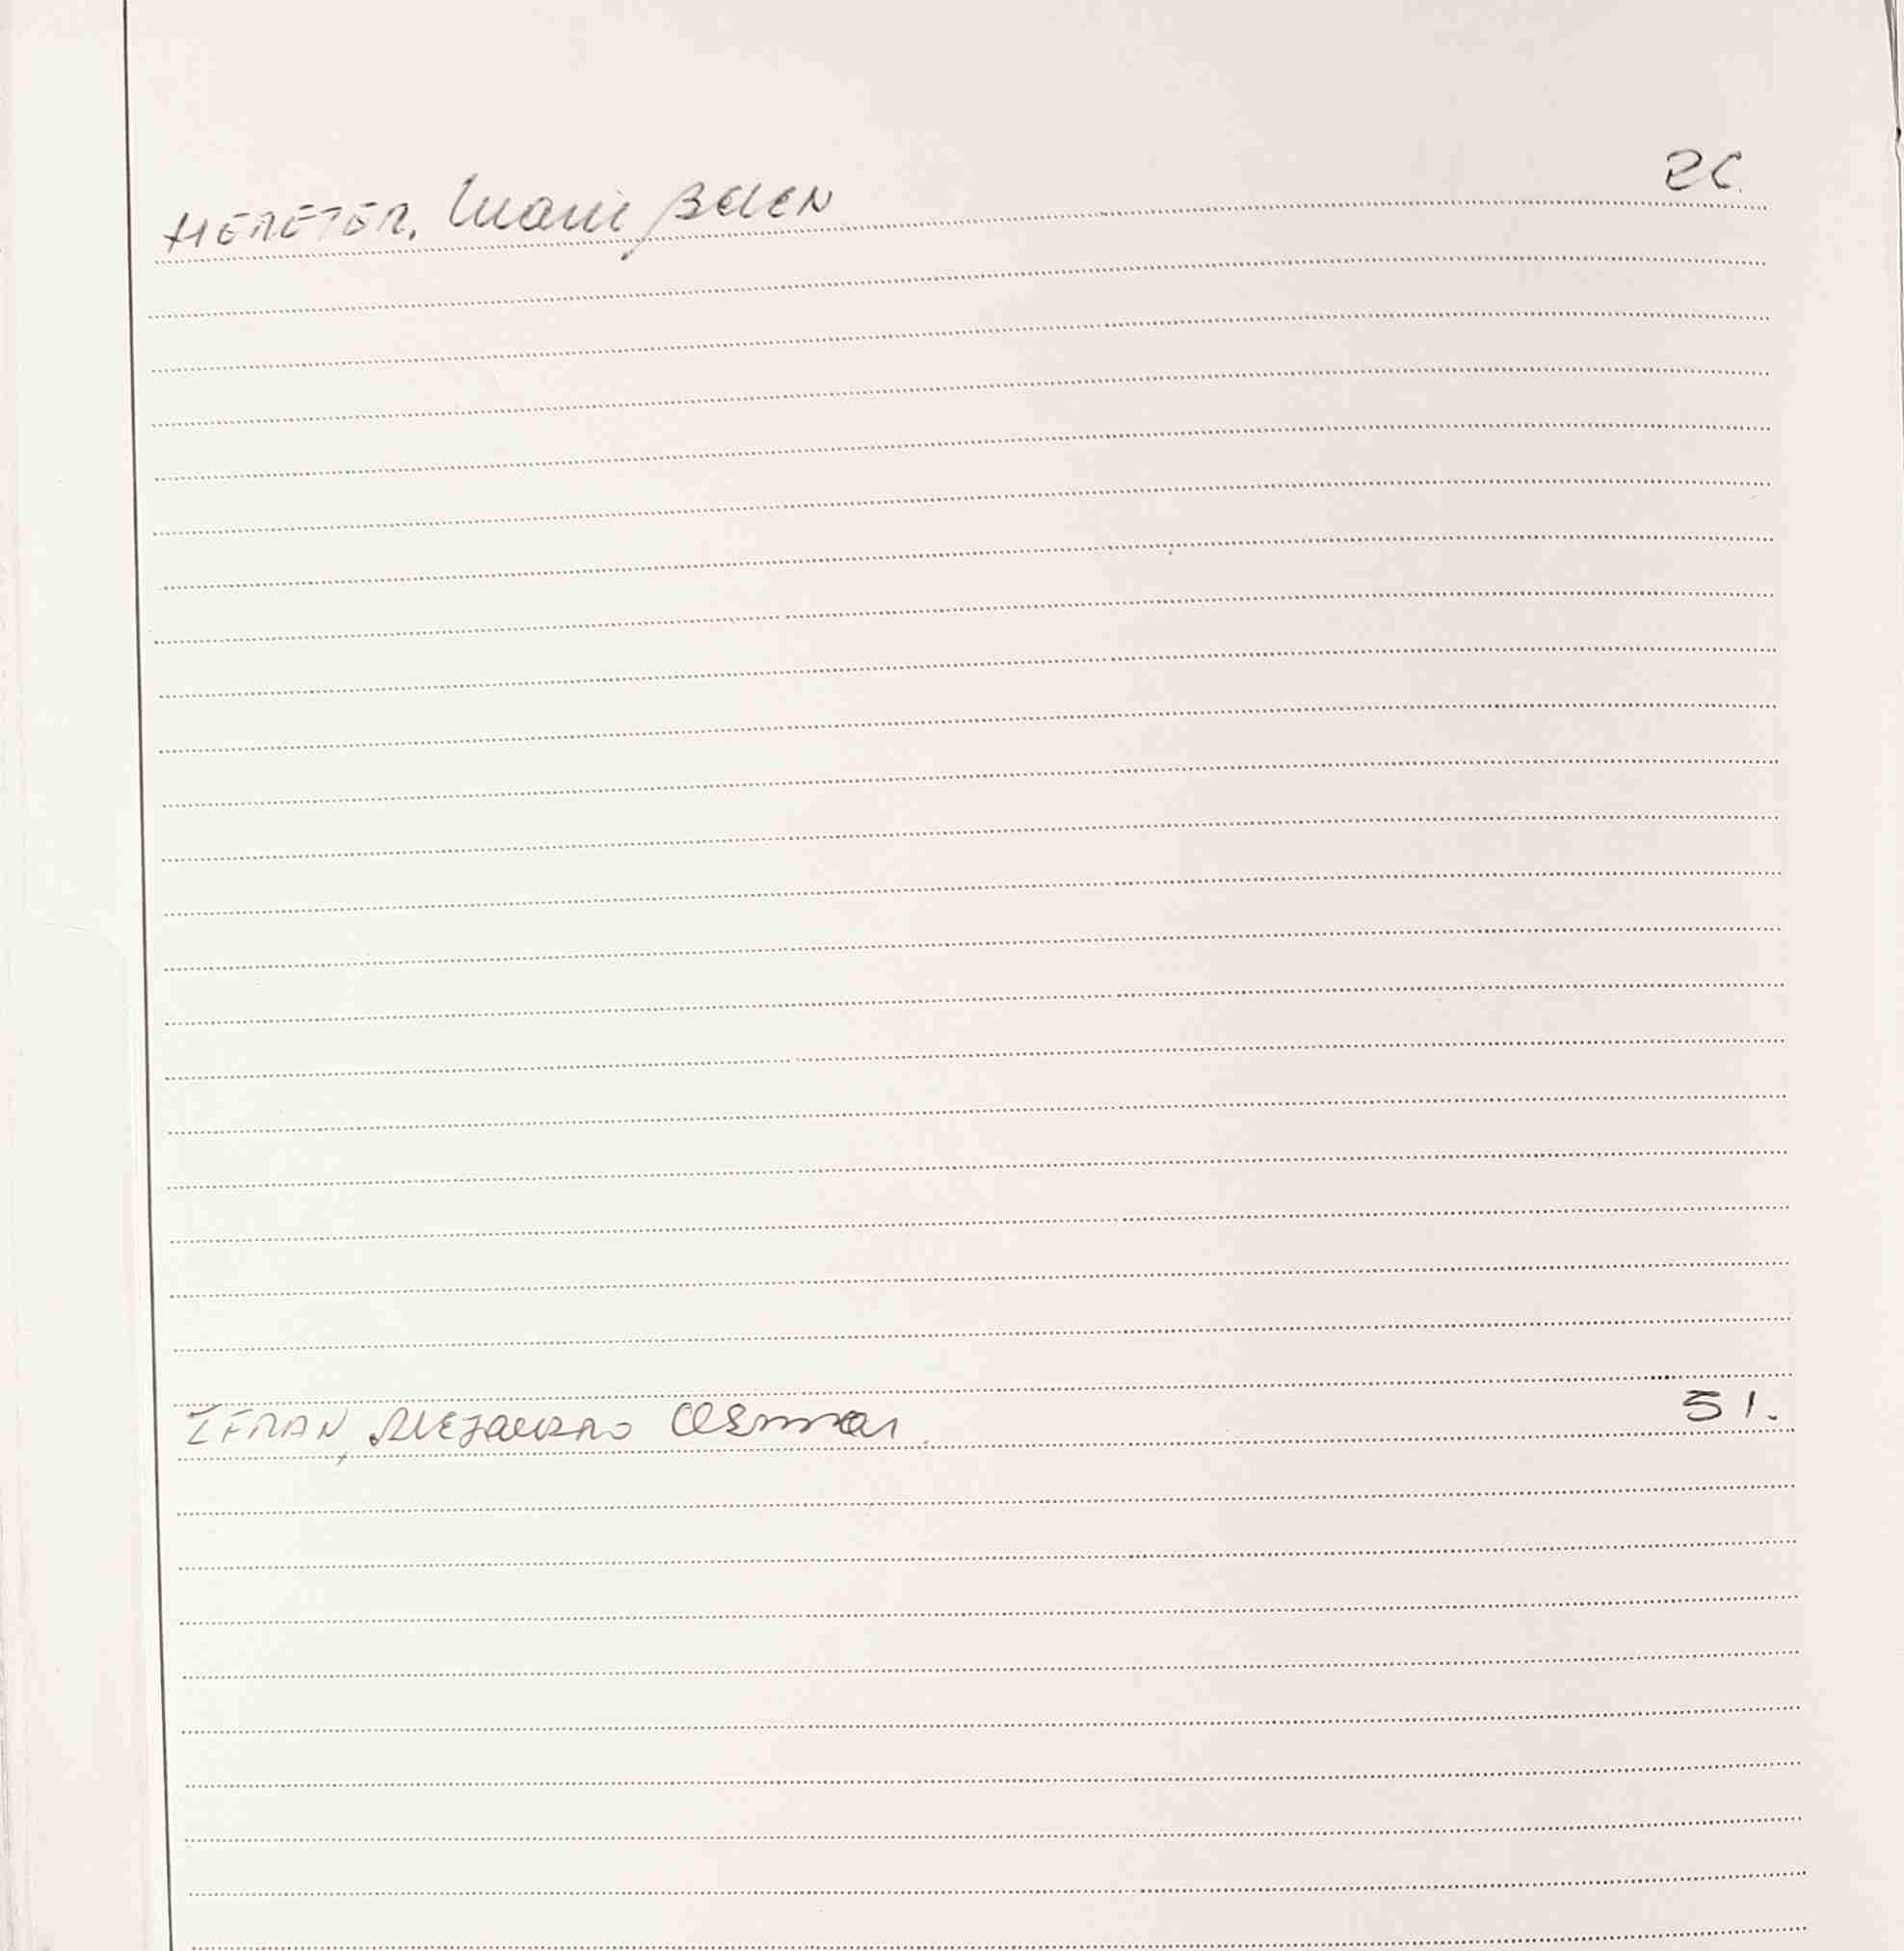 HERETER, Maria BELEN 26.
IFRAN, Alejandro Osmar. 51.